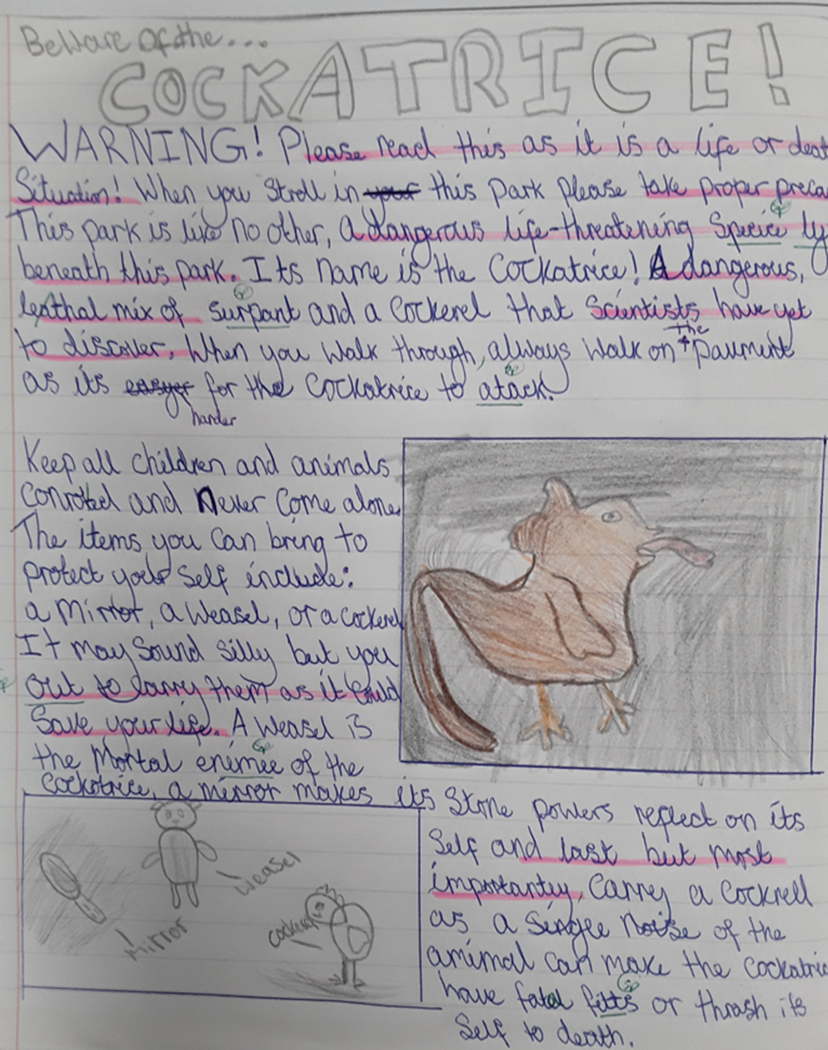 Beware of the...
COCKATRICE!
WARNING! Please read this as it is a life or deat
Situation! When you stroll in your this park please take proper preca
This park is like no other, a dangerous life-threatening Speice ly
sp
beneath this park. Its name is the Cockatrice! A dangerous,
leathal mix of surpant and a Cockerel that Scientists have yet
sp
to discover. When you walk through, always walk on the pavment
as its easyer harder for the Cockatrice to atack.
sp
Keep all children and animals
conrolled and never come alone
The items you can bring to
protect your self include:
a mirror, a weasel, or a cockerel
It may sound silly but you
sp
out to carry them as it could
save your life. A weasel is
the mortal enimee of the
sp
cockatrice, a mirror makes its Stone powers reflect on its
Self and last but most
importantly, Carry a Cockrell
as a single noise of the
animal can make the cockatric
have fatal fitts or thrash its
sp
Self to death.
Mirror
Weasel